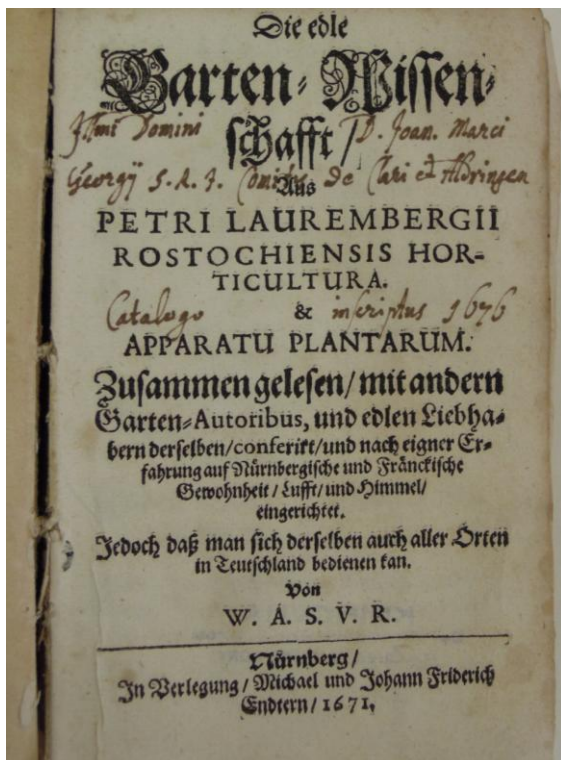 Die edle
Garten-Wissen-
schafft/
Illmi Domini D. Joan. Marci
Georgÿ S. R. J. Comitis De Clari et Aldringen
Aus
PETRI LAUREMBERGII
ROSTOCHIENSIS HOR-
TICULTURA.
&
Catalogo inscriptus 1676
APPARATU PLANTARUM.
Zusammen gelesen/ mit andern
Garten-Autoribus, und edlen Liebha-
bern derselben/conferirt/und nach eigner Er-
fahrung auf Nürnbergische und Fränckische
Gewohnheit / Lufft/ und Himmel/
eingerichtet.
Jedoch daß man sich derselben auch aller Orten
in Teutschland bedienen kan.
Von
W. A. S. V. R.
Nürnberg/
In Verlegung / Michael und Johann Friderich
Endtern/ 1671.